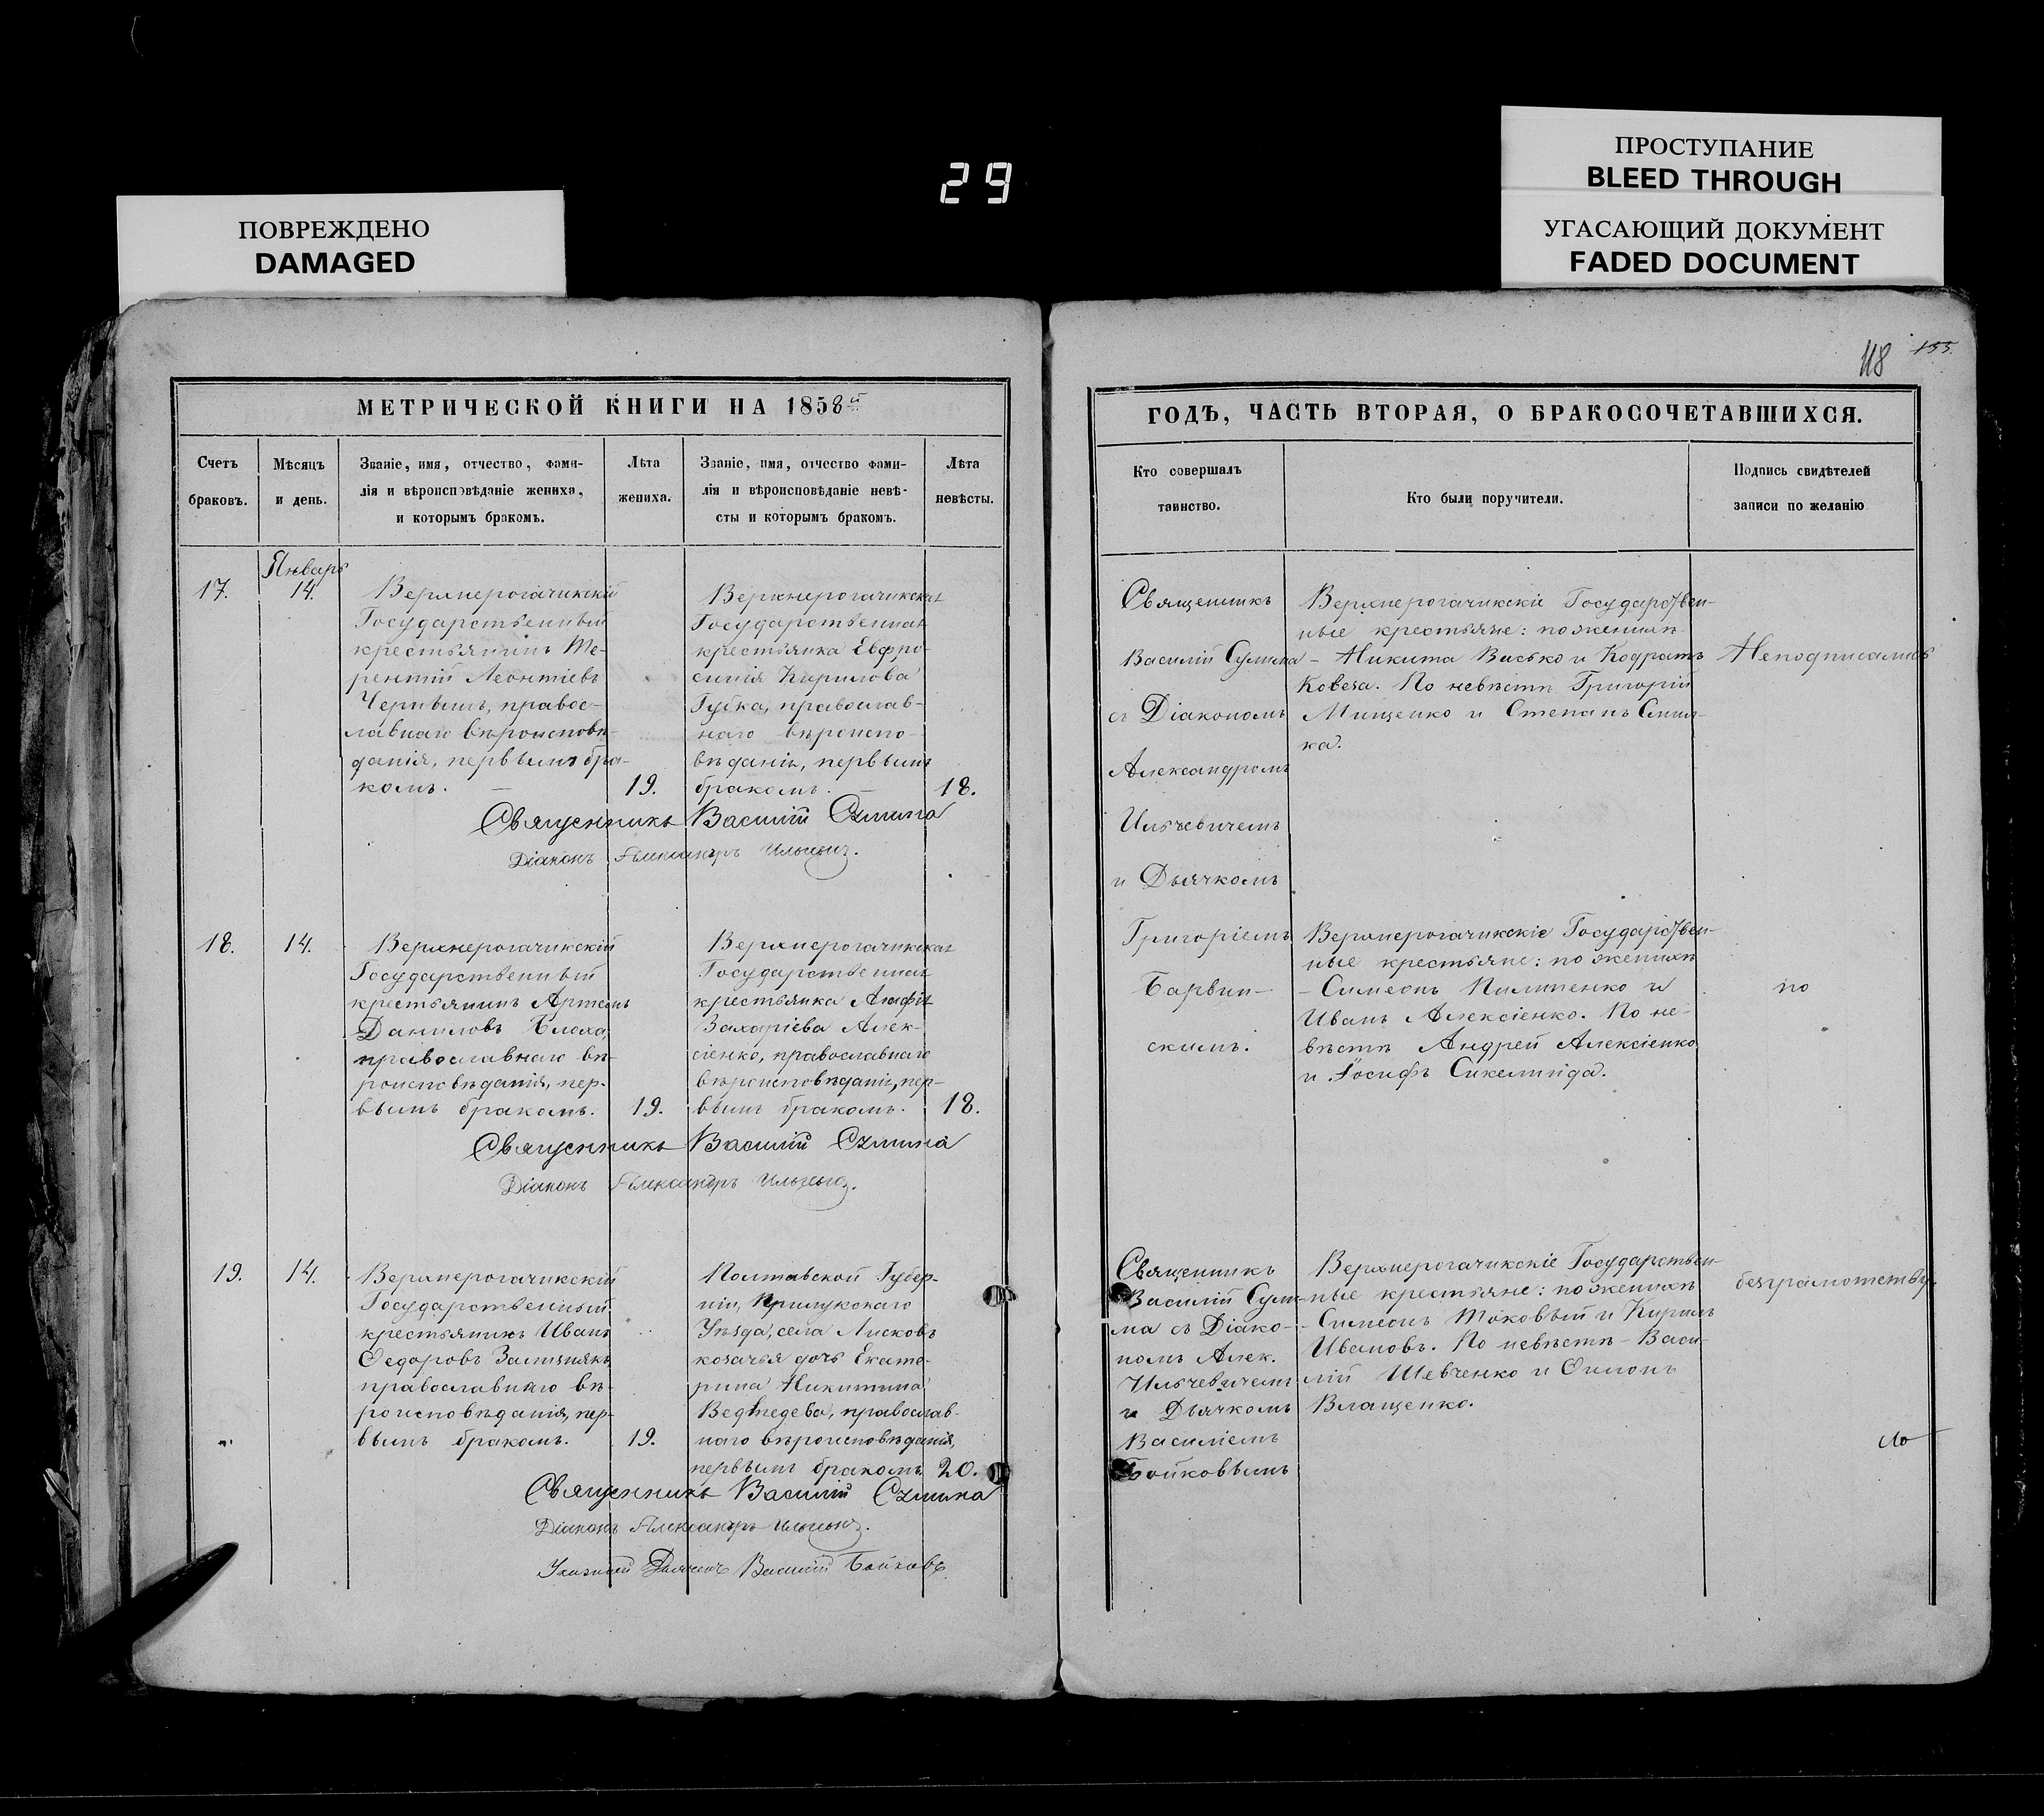 29
ПОВРЕЖДЕНО
DAMAGED
ПРОСТУПАНИЕ
BLEED THROUGH
УГАСАЮЩИЙ ДОКУМЕНТ
FADED DOCUMENT
МЕТРИЧЕСКОЙ КНИГИ НА 1858й
Счетъ
браковъ.
Мѣсяцъ
и день.
Званіе, имя, отчество, фами-
лія и вѣроисповѣданіе жениха,
и которымъ бракомъ.
Лѣта
жениха.
Званіе, имя, отчество фами-
лія и вѣроисповѣданіе невѣ-
сты и которымъ бракомъ.
Лѣта
невѣсты.
Январь
17.
14.
Верхнерогачикскій
Государственный
крестьянинъ Те-
рентій Леонтіевъ
правос-
лавнаго вѣроисповѣ-
данія, первымъ бра-
комъ. —
19.
Верхнерогачикская
Государственная
крестьянка Евфро-
синія Кирилова
Губка, православ-
наго вѣроиспо-
вѣданія, первымъ
бракомъ. —
18.
Священникъ Василій Сулима
Діаконъ Александръ Ильчевич.
18.
14.
Верхнерогачикскій
Государственный
крестьянинъ Артемъ
Даниловъ Блоха,
православнаго вѣ-
роисповѣданія, пер-
вымъ бракомъ.
19.
Верхнерогачикская
Государственная
крестьянка Агафія
Захаріева Алек-
сіенко, православнаго
вѣроисповѣданія, пер-
вымъ бракомъ.
18.
Священникъ Василій Сулима
Діаконъ Александръ Ильчевич.
19.
14.
Верхнерогачикскій
Государственный
крестьянинъ Иванъ
Ѳедоровъ
православнаго вѣ-
роисповѣданія, пер-
вымъ бракомъ.
19.
Полтавской Губер-
ніи, Прилукскаго
Уѣзда, села Лисковъ
козачья дочь Екате-
рина Никитина
Ведмедева, православ-
наго вѣроисповѣданія,
первымъ бракомъ.
20.
Священникъ Василій Сулима
Діаконъ Александръ Ильчевич.
Указный Дьячекъ Василій Бойковъ
118
155.
ГОДЪ, ЧАСТЬ ВТОРАЯ, О БРАКОСОЧЕТАВШИХСЯ.
Кто совершалъ
таинство.
Кто были поручители.
Подпись свидѣтелей
записи по желанію
Священникъ
Василій Сулима
съ Діакономъ
Александромъ
Ильчевичемъ
и Дьячкомъ
Григоріемъ
Барвин-
скимъ.
Верхнерогачикскіе Государствен-
ные крестьяне: по женихѣ
- Никита Висько и Кодратъ
Ковеза. По невѣстѣ Григорій
Мищенко и Степанъ
ка.
Неподписались
Верхнерогачикскіе Государствен-
ные крестьяне: по женихѣ
- Симеонъ Пилипенко и
Иванъ Алексіенко. По не-
вѣстѣ Андрей Алексіенко
и Іосифъ
по
Священникъ
Василій Сули-
ма съ Діако-
номъ Алек.
Ильчевичемъ
и Дьячкомъ
Василіемъ
Бойковымъ
Верхнерогачикскіе Государствен-
ные крестьяне: по женихѣ
- Симеонъ Токовый и Кирилъ
Ивановъ. По невѣстѣ - Васи-
лій Шевченко и
Влащенко.
безграмотству.